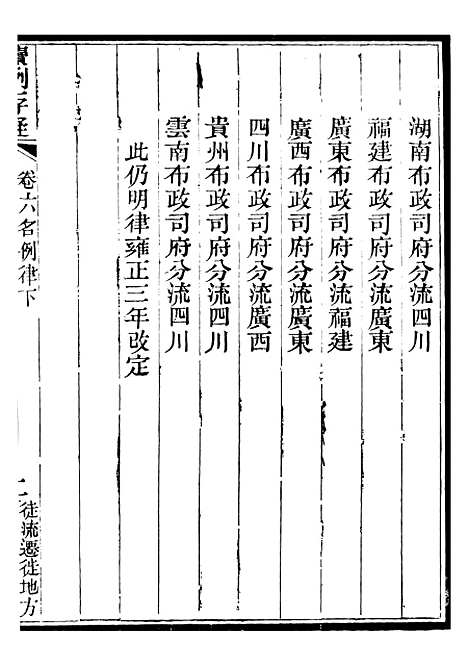 湖南布政司府分流四川
福建布政司府分流廣東
廣東布政司府分流福建
廣西布政司府分流廣東
四川布政司府分流廣西
貴州布政司府分流四川
雲南布政司府分流四川
此仍明律雍正三年改定
讀例存疑
卷六名例律下
徒流遷徙地方